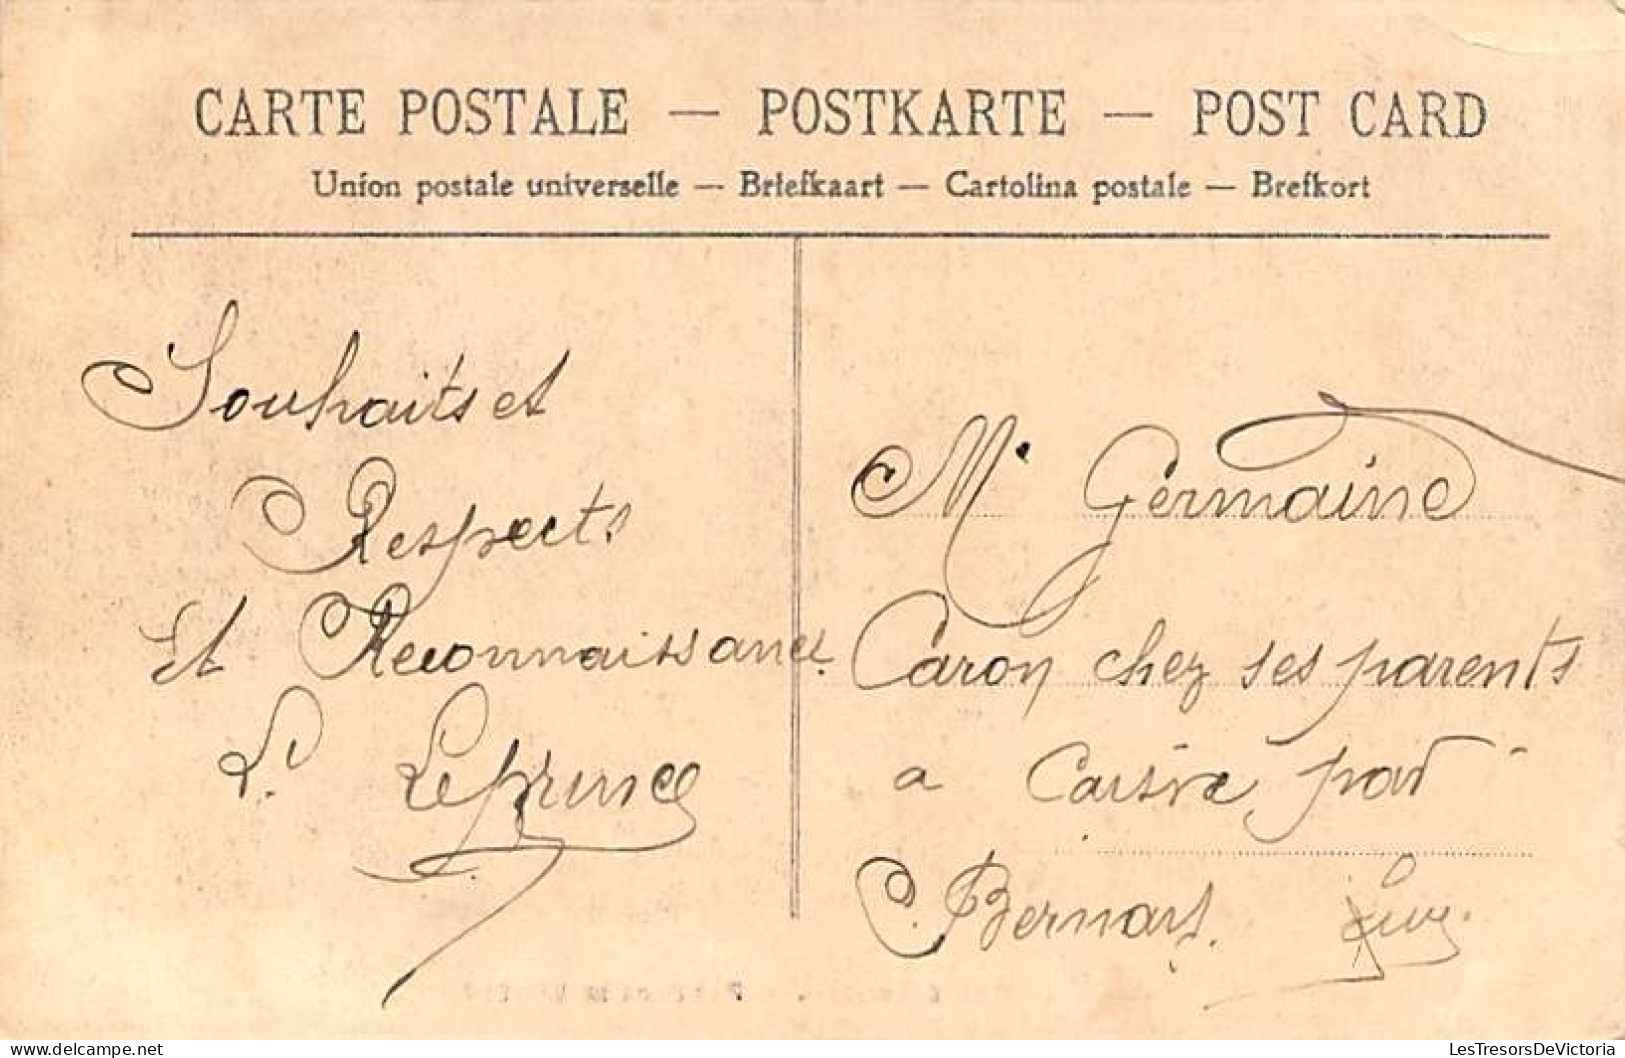 CARTE POSTALE — POSTKARTE — POST CARD
Union postale universelle — Briefkaart — Cartolina postale — Brefkort
Souhaits et
Respects
et Reconnaissance
L. Leprince
M. Germaine
Caron chez ses parents
a par
Bernay.
www.delcampe.net
LesTresorsDeVictoria